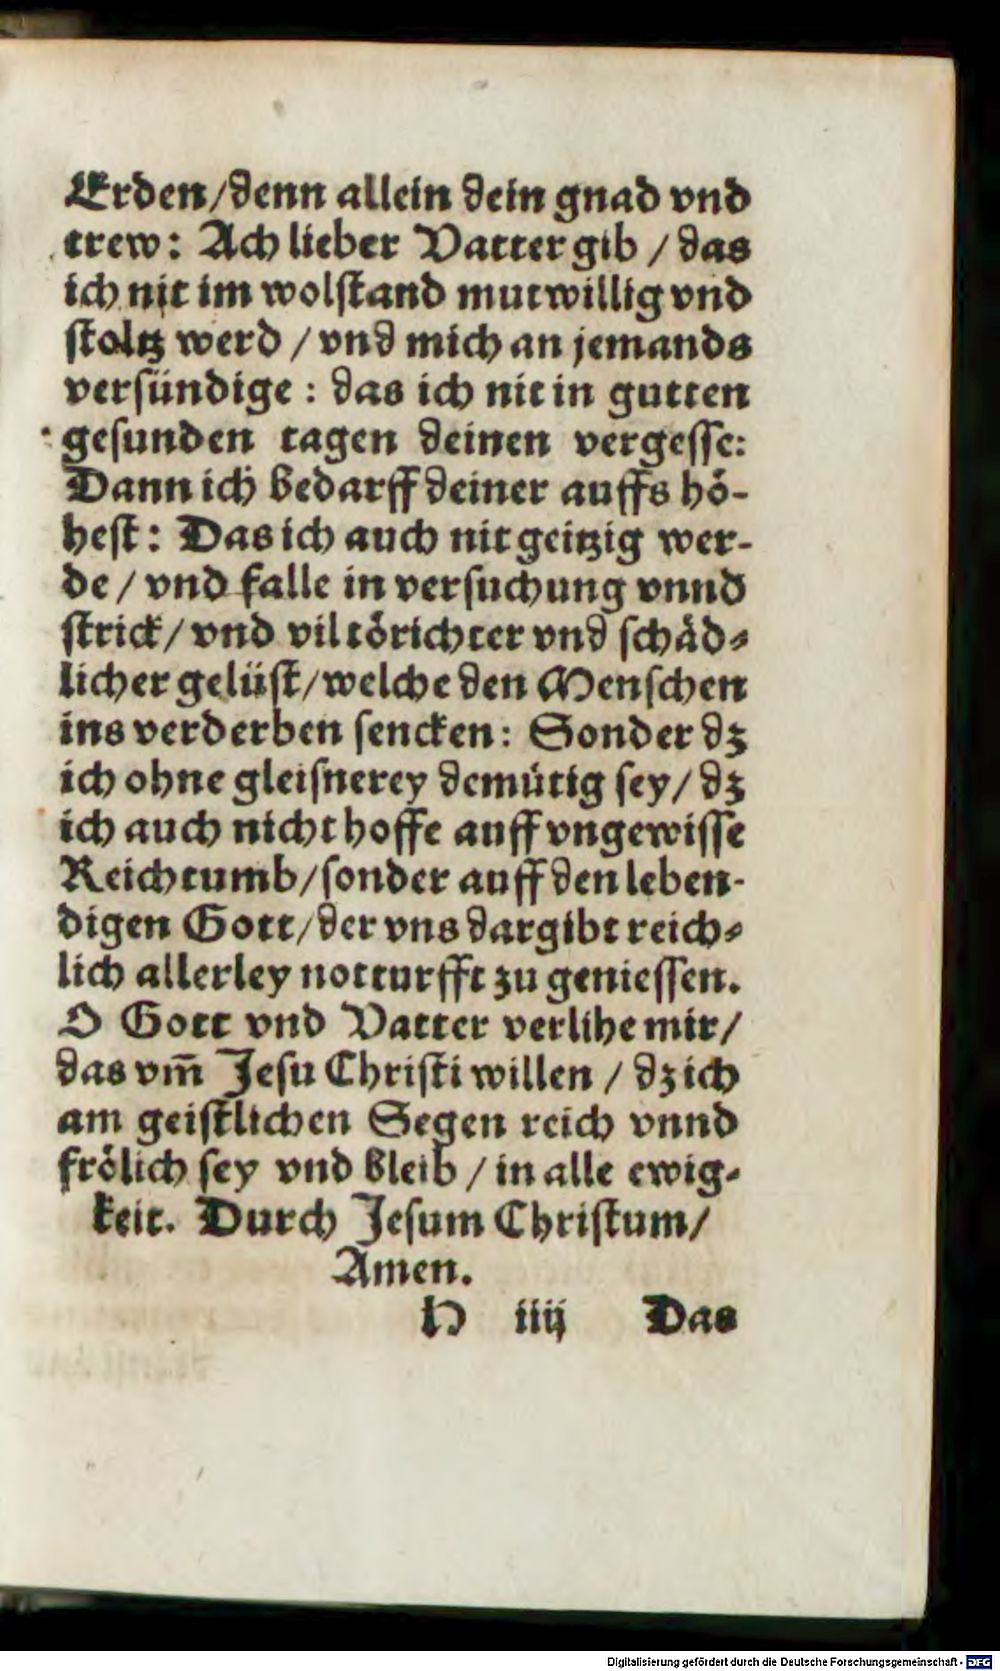 Erden/denn allein dein gnad vnd
trew: Ach lieber Vatter gib / das
ich nit im wolſtand mutwillig vnd
ſtoltz werd / vnd mich an jemands
verſündige : das ich nit in gutten
geſunden tagen deinen vergeſſe:
Dann ich bedarff deiner auffs hoͤ-
heſt: Das ich auch nit geitzig wer-
de / vnd falle in verſuchung vnnd
ſtrick/ vnd vil toͤrichter vnd ſchaͤd-
licher gelüſt/welche den Menſchen
ins verderben ſencken: Sonder dz
ich ohne gleiſnerey demuͤtig ſey/ dz
ich auch nicht hoffe auff vngewiſſe
Reichtumb/ſonder auff den leben-
digen Gott/der vns dargibt reich-
lich allerley notturfft zu genieſſen.
O Gott vnd Vatter verlihe mir/
das vm̄ Jeſu Chriſti willen / dz ich
am geiſtlichen Segen reich vnnd
froͤlich ſey vnd bleib / in alle ewig-
keit. Durch Jeſum Chriſtum/
Amen.
H iiij Das
Digitalisierung gefördert durch die Deutsche Forschungsgemeinschaft - DFG